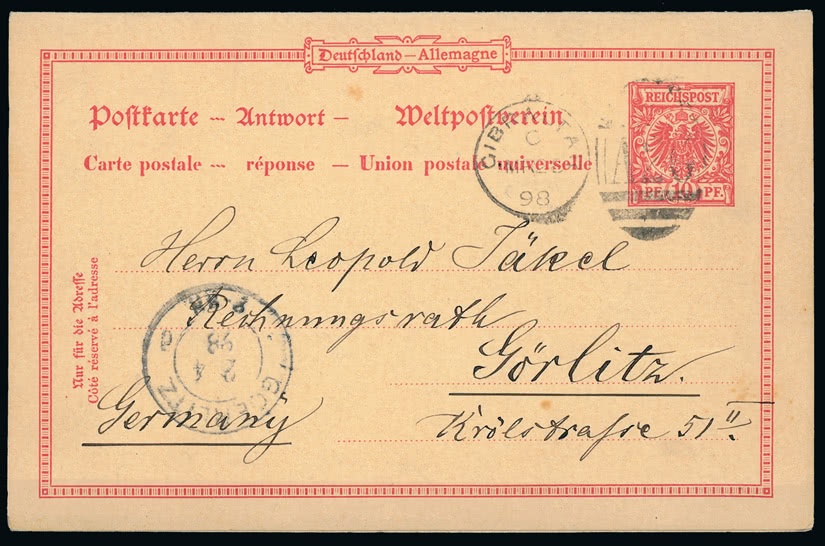 Deutschland – Allemagne
Postkarte – Antwort – Weltpostverein
Carte postale – réponse – Union postale universelle
REICHSPOST
PF. 10 PF.
GIBRALTAR
C
98
Herrn Leopold Jäkel
Rechnungsrath
Görlitz.
Germany
Krölstraße 51 II
Nur für die Adresse
Côté réservé à l'adresse
GOERLITZ
2 4
98